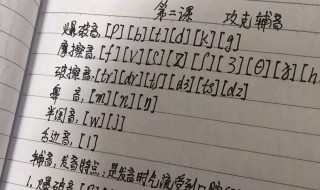 第二课 攻克辅音
爆破音:[p][b][t][d][k][g]
摩擦音:[f][v][s][z][ʃ][ʒ][θ][ð][h
破擦音:[tr][dr][tʃ][dʒ][ts][dz]
鼻 音:[m][n][ŋ]
半闭音:[w][j]
舌边音,[l]
辅音,发音特点:是发音时气流受到口腔
1. 爆破音